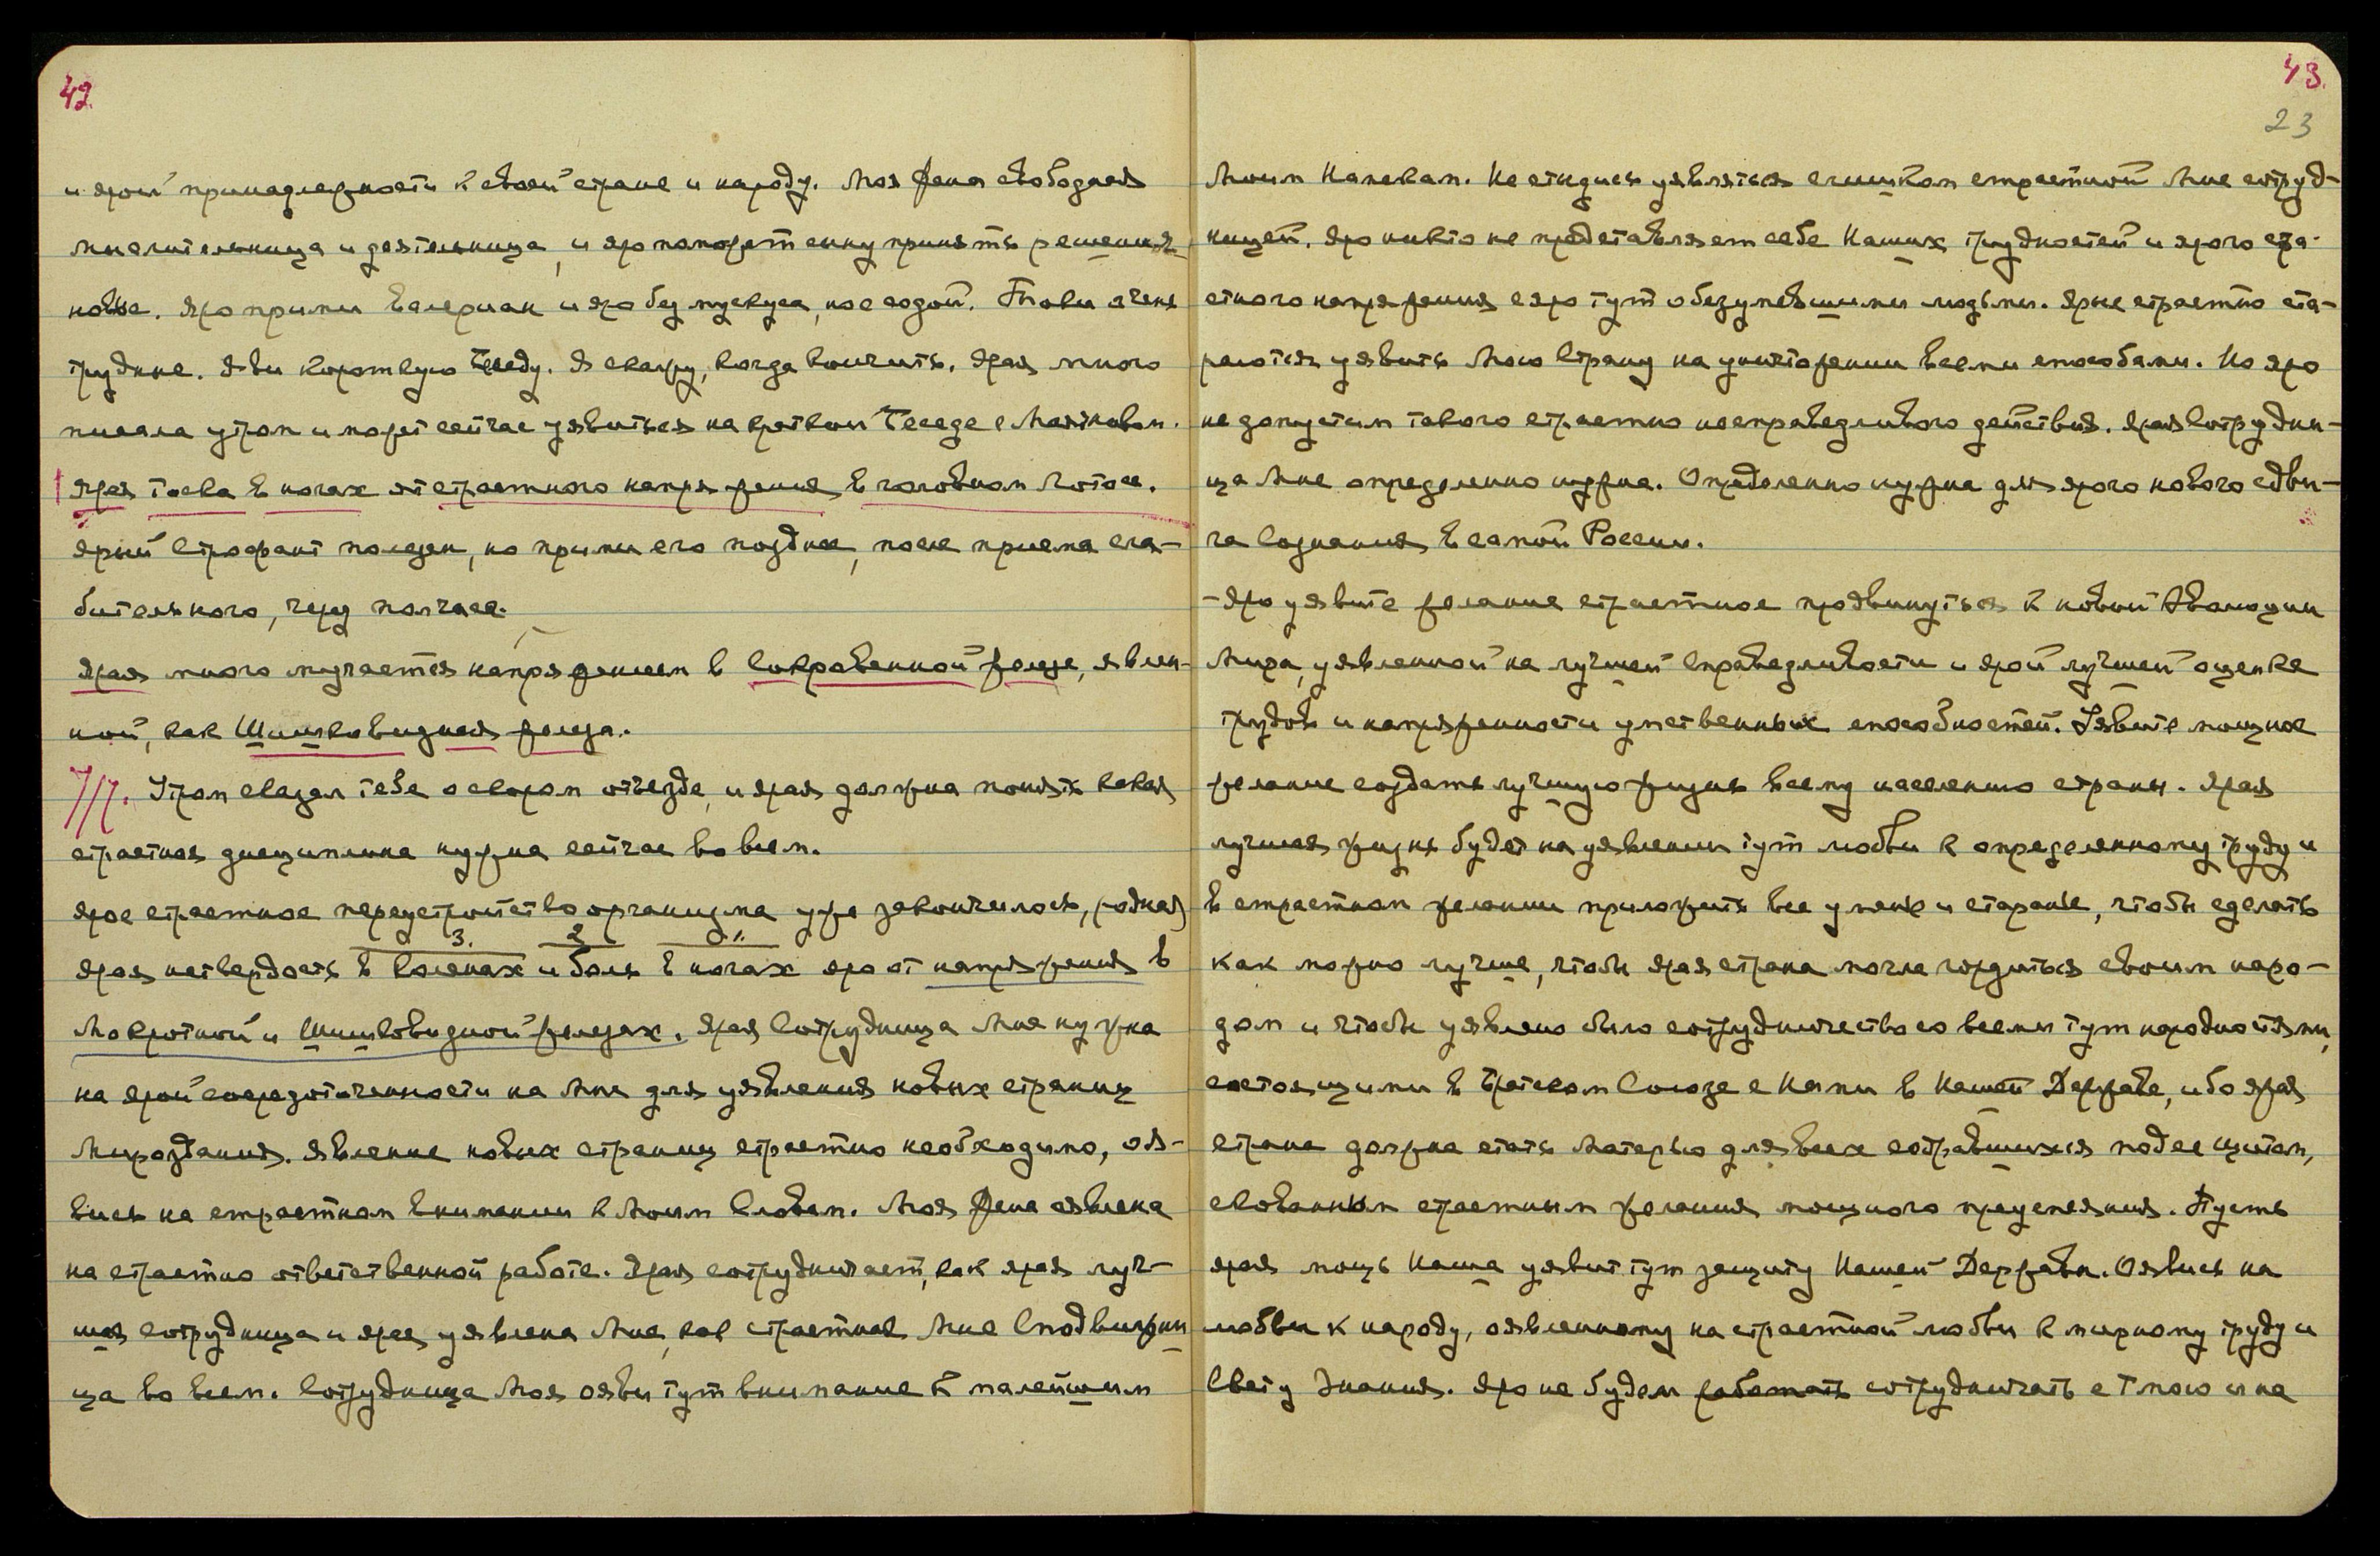 42.
и ярой принадлежности к своей стране и народу. Моя Жена свободная
мыслительница и деятельница, и яро поможет ему принять решения
новые. Яро прими Валериан и яро без мускуса, но с содой. Токи очень
трудные. Яви короткую Беседу. Я скажу, когда кончить. Ярая много
писала утром и может сейчас уявиться на краткой Беседе с Маяковым.
Ярая тоска в ногах от страстного напряжения в головном Лотосе.
Ярый Строфант полезен, но прими его позднее, после приема сла-
бительного, через полчаса.
Ярая много мучается напряжением в Сокровенной железе, явлен-
ной, как Шишковидная железа.
7/7. Утром сказал тебе о скором отъезде, и ярая должна понять какая
страстная дисциплина нужна сейчас во всем.
Ярое страстное переустройство организма уже закончилось, (родная)
3. 2 1.
Ярая нетвердость в коленах и боль в ногах яро от напряжения в
Мокротной и Шишковидной железах. Ярая Сотрудница Мне нужна
на ярой сосредоточенности на Мне для уявления новых страниц
Мироздания. Явление новых страниц страстно необходимо, ояв-
вись на страстном внимании к Моим Словам. Моя Жена оявлена
на страстно ответственной работе. Ярая сотрудничает, как ярая луч-
шая сотрудница и ярая уявлена Мне, как страстная Мне Сподвижни-
ца во всем. Сотрудница Моя ояви тут внимание к малейшим
43.
23
Моим Намекам. Не стыдись уявляться слишком страстной Мне сотруд-
ницей. Яро никто не представляет себе Наших трудностей и ярого стра-
стного напряжения с яро тут обезумевшими людьми. Ярые страстно ста-
раются уявить Мою Страну на уничтожении всеми способами. Но яро
не допустим такого страстно несправедливого действия. Ярая Сотрудни-
ца Мне определенно нужна. Определенно нужна для ярого нового сдви-
га Сознания в самой России.
- Яро уявите желание страстное продвинуться к новой Эволюции
Мира, уявленной на лучшей Справедливости и ярой лучшей оценке
трудов и напряженности умственных способностей. Уявите мощное
желание создать лучшую жизнь всему населению страны. Ярая
лучшая жизнь будет на уявлении тут любви к определенному труду и
в страстном желании приложить все умение и старание, чтобы сделать
как можно лучше, чтобы ярая страна могла гордиться своим наро-
дом и чтобы уявлено было сотрудничество со всеми тут народностями,
состоящими в Братском Союзе с Нами в Нашей Державе, ибо ярая
страна должна стать Матерью для всех собравшихся под ее щитом,
скованным страстным желания мощного преуспеяния. Пусть
ярая мощь Наша уявит тут защиту Нашей Державы. Оявись на
любви к народу, оявленному на страстной любви к мирному труду и
Свету Знания. Яро не будем работать сотрудничать с Тьмою и на